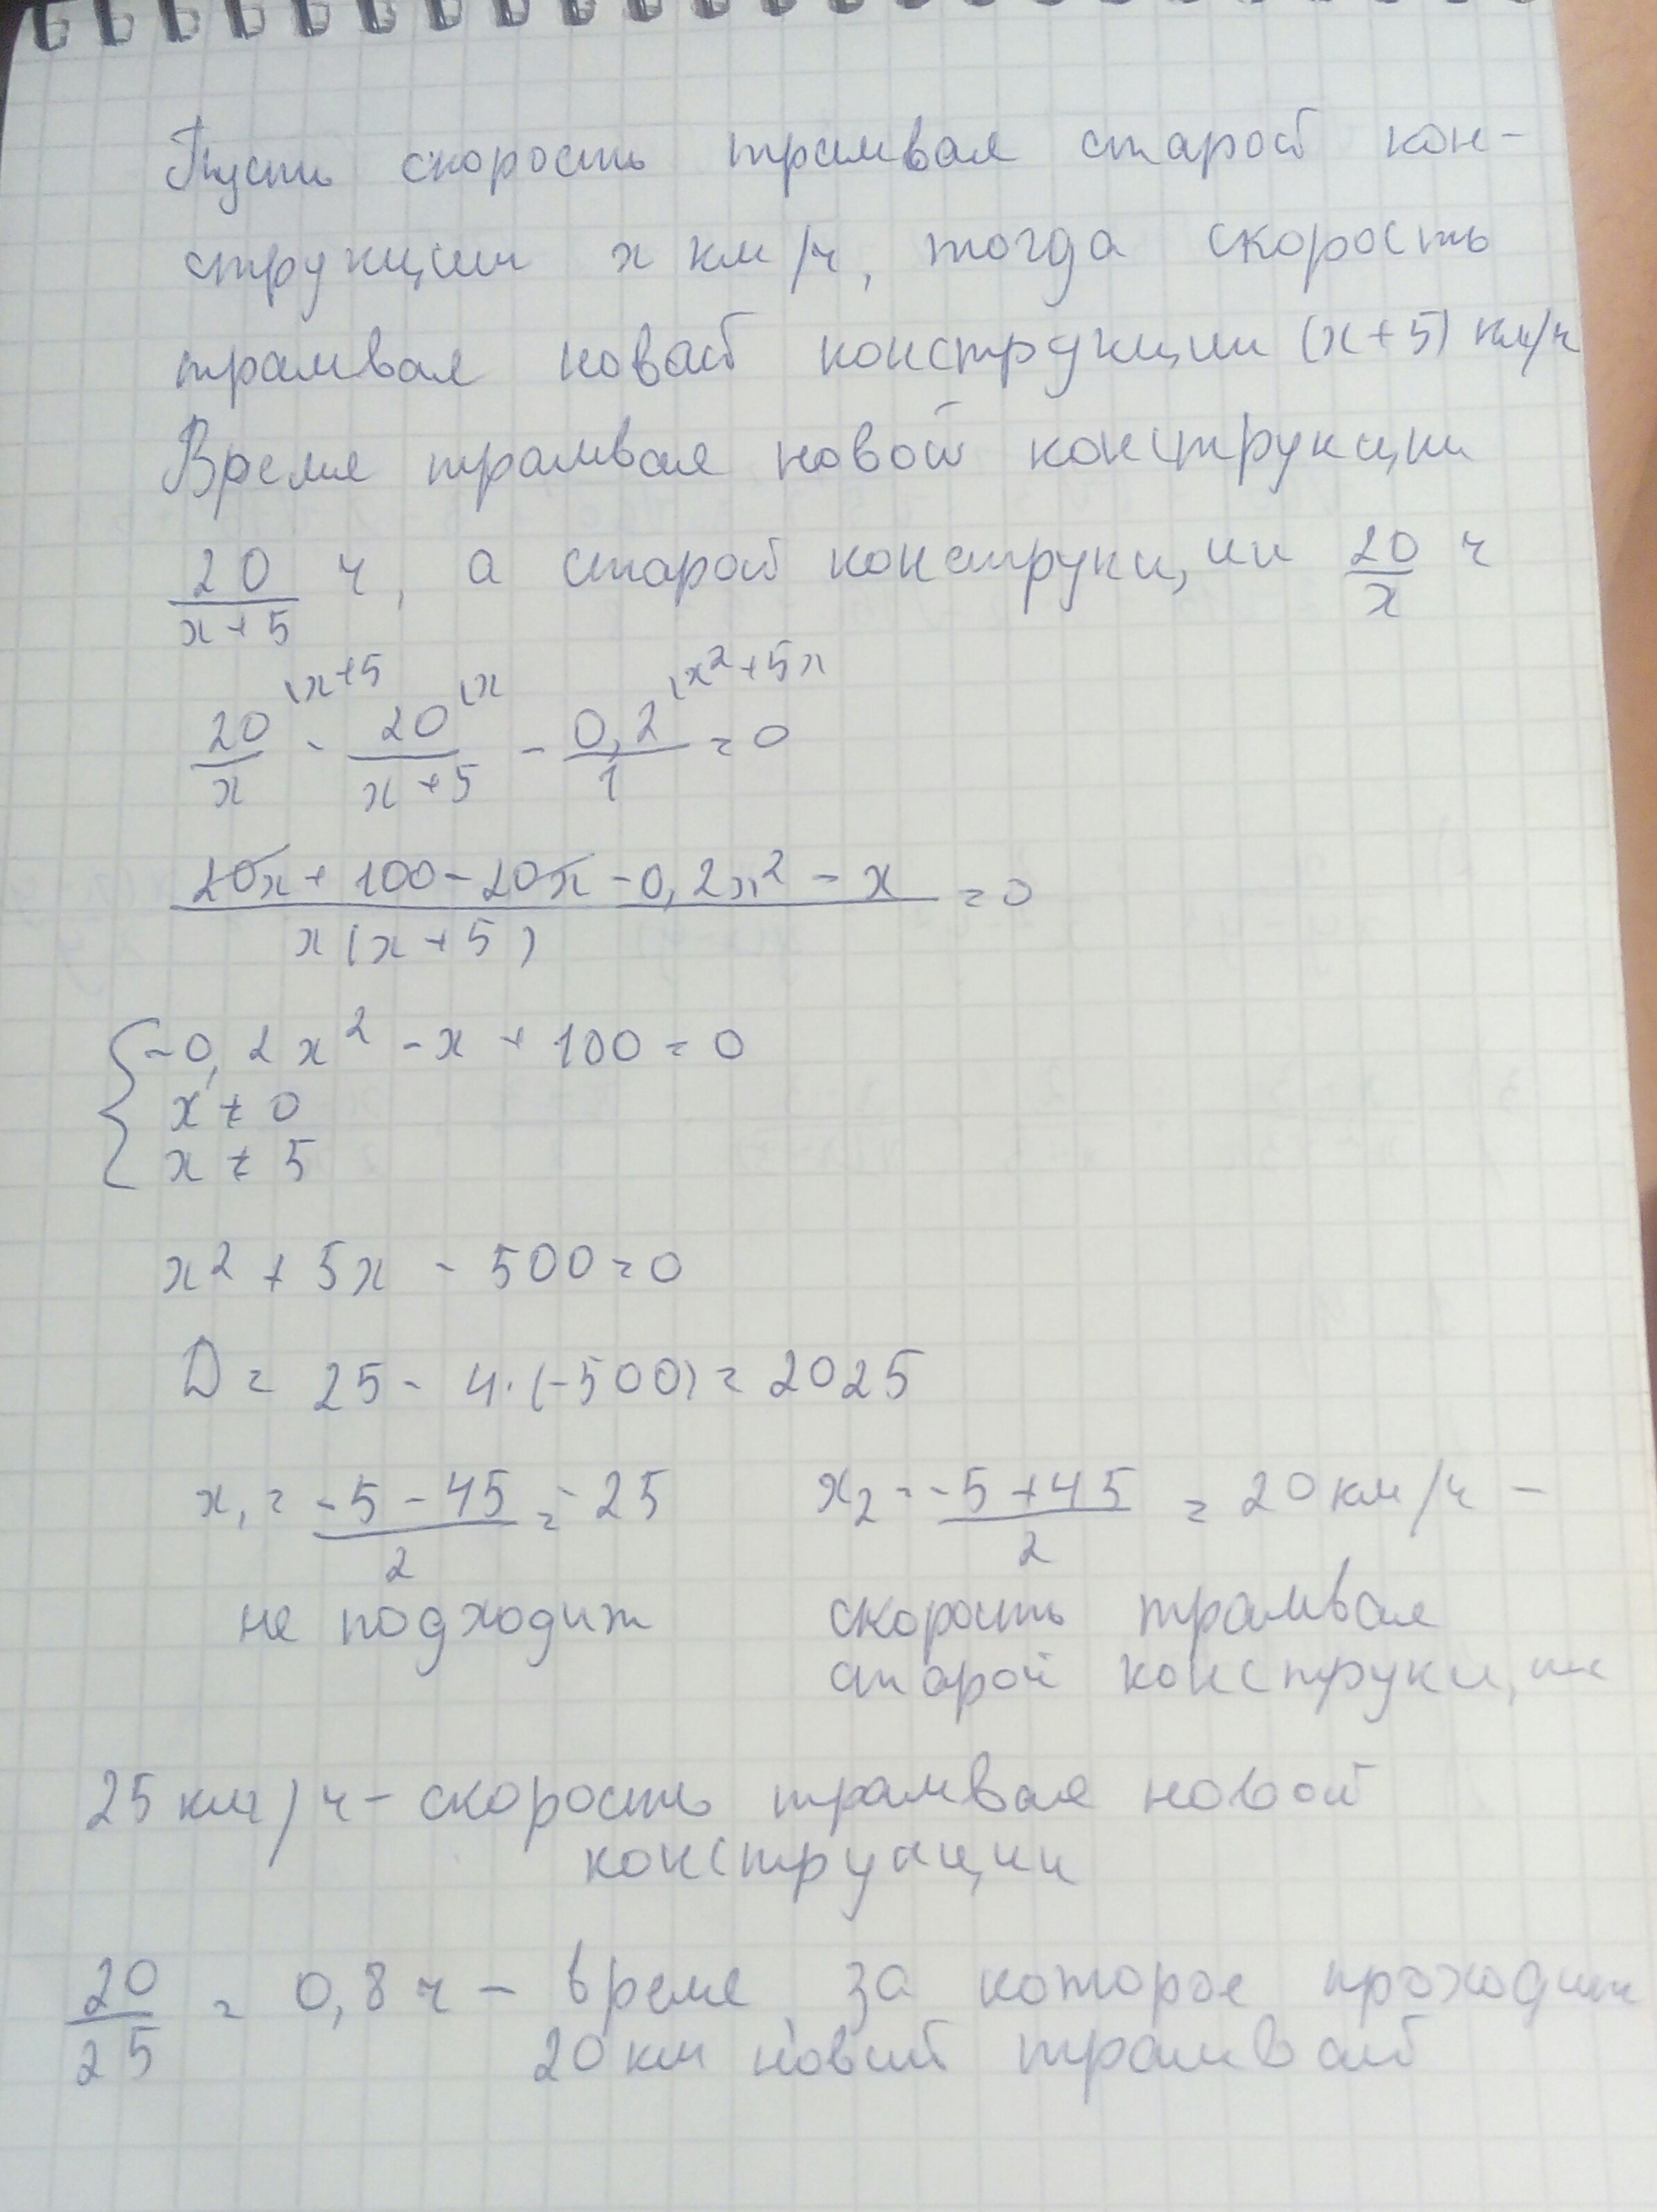 Пусть скорость трамвая старой кон-
струкции x км/ч, тогда скорость
трамвая новой конструкции (x+5) км/ч
Время трамвая новой конструкции
20/(x+5) ч, а старой конструкции 20/x ч
20/x (x+5 - 20/(x+5) (x - 0,2/1 (x²+5x = 0
(20x + 100 - 20x - 0,2x² - x)/(x(x+5)) = 0
{ -0,2x² - x + 100 = 0
x ≠ 0
x ≠ 5
x² + 5x - 500 = 0
D = 25 - 4·(-500) = 2025
x₁ = (-5-45)/2 = -25
не подходит
x₂ = (-5+45)/2 = 20 км/ч -
скорость трамвая
старой конструкции
25 км/ч - скорость трамвая новой
конструкции
20/25 = 0,8 ч - время, за которое проходит
20 км новый трамвай